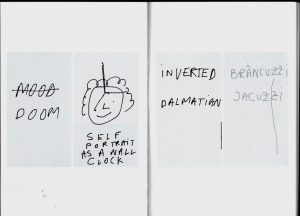 MOOD
DOOM
SELF
PORTRAIT
AS A WALL
CLOCK
INVERTED
DALMATIAN
BRÂNCUZZI
JACUZZI